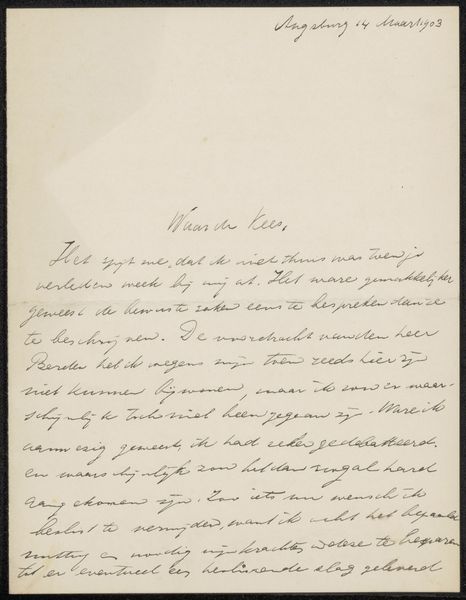 Augsburg 14 Maart 1903
Waarde Kees,
Het spijt me, dat ik niet thuis was toen je
verleden week bij mij at. Het ware gemakkelijker
geweest de bewuste zaken eens te bespreken dan ze
te beschrijven. De voordracht van den heer
heb ik wegens mijn toen reeds hier zijn
niet kunnen bijwonen, maar ik zou er waar-
schijnlijk toch niet heen gegaan zijn. Ware ik
aanwezig geweest, ik had zeker gedebatteerd.
en waarschijnlijk zou het dan nogal hard
aangekomen zijn. Zoo iets nu wensch ik
beslist te vermijden, want ik acht het bepaald
nuttig en noodig mijn krachten te bewaren
tot er eventueel een beslissende slag geleverd